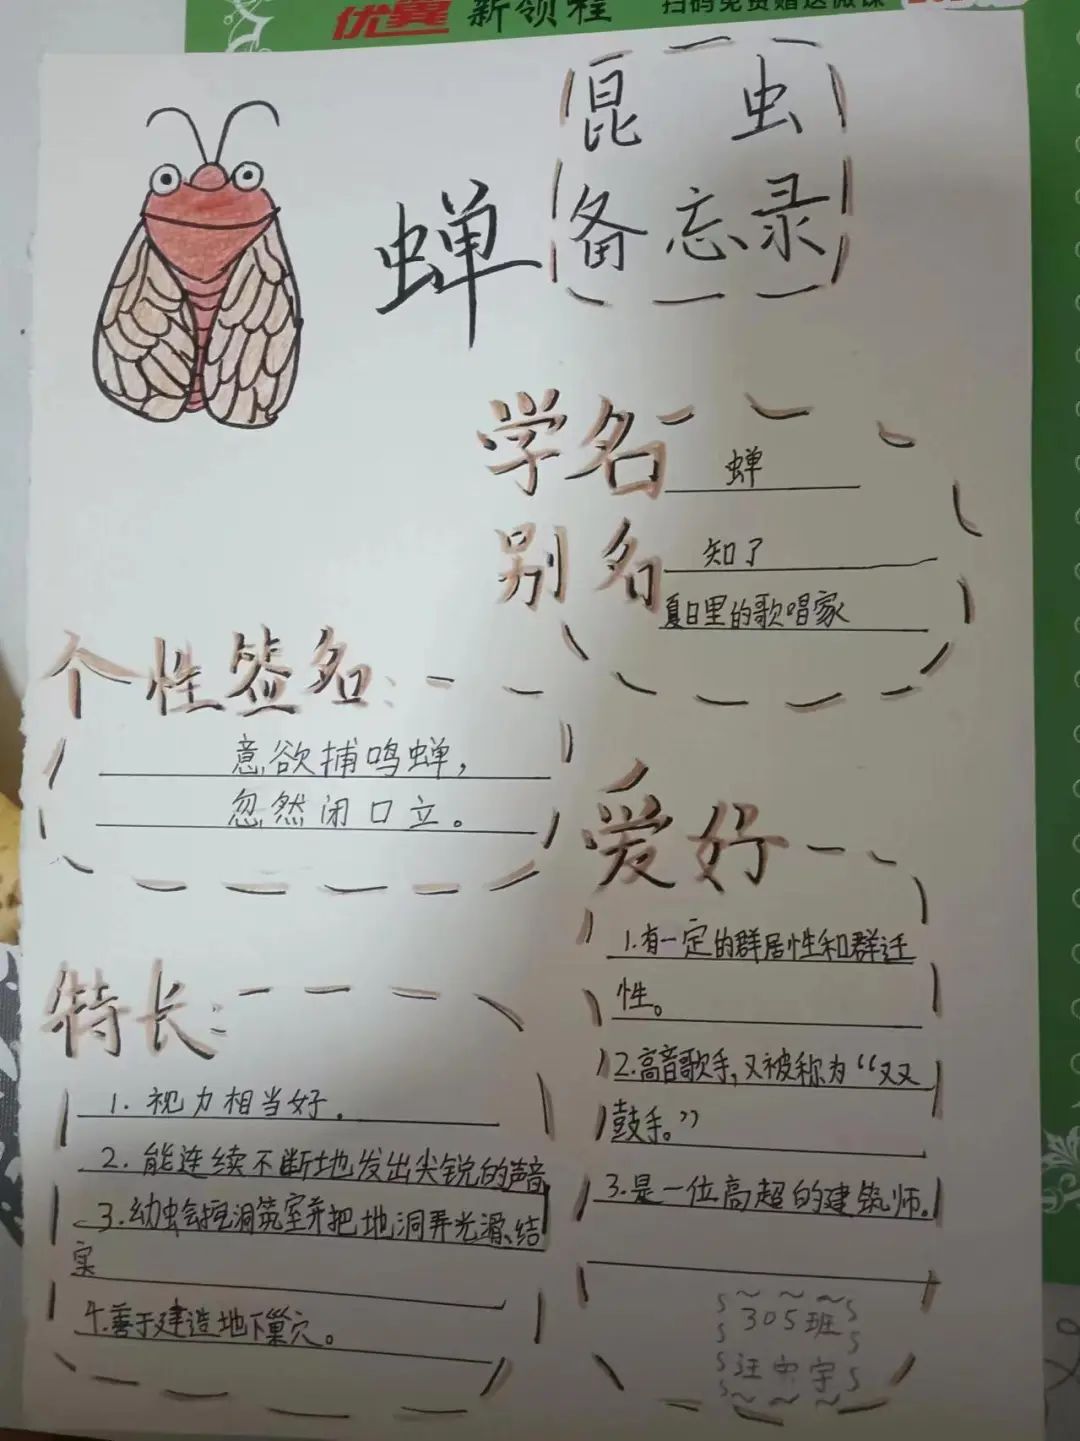 优翼 新领程 扫码免费赠送微课
昆虫
备忘录
蝉
学名 蝉
别名 知了
夏日里的歌唱家
个性签名:
意欲捕鸣蝉,
忽然闭口立。
爱好
1.有一定的群居性和群迁
性。
2.高音歌手,又被称为“双又
鼓手。”
3.是一位高超的建筑师。
特长:
1. 视力相当好.
2. 能连续不断地发出尖锐的声音
3.幼虫会挖洞筑室并把地洞弄光滑、结
实
4.善于建造地下巢穴。
305班
汪 宇